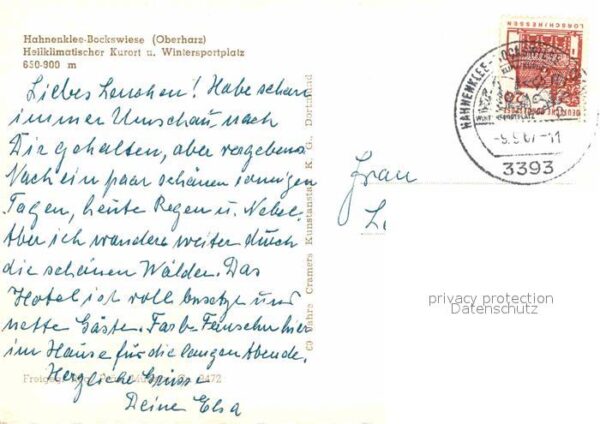 Hahnenklee-Bockswiese (Oberharz)
Heilklimatischer Kurort u. Wintersportplatz
650-900 m
Liebes Lenchen! Habe schon
immer Umschau nach
Dir gehalten, aber vergebens
Nach ein paar schönen sonnigen
Tagen, heute Regen u. Nebel.
Aber ich wandere weiter durch
die schönen Wälder. Das
Hotel ist voll besetzt und
nette Gäste. Farb-Fernsehn hier
im Hause für die langen Abende.
Herzliche Grüsse
Deine Elsa
60 Jahre Cramers Kunstanstalt K. G., Dortmund
LORSCH/HESSEN
DEUTSCHE BUNDESPOST
20
HAHNENKLEE-BOCKSWIESE
3393
Frau
L
privacy protection
Datenschutz